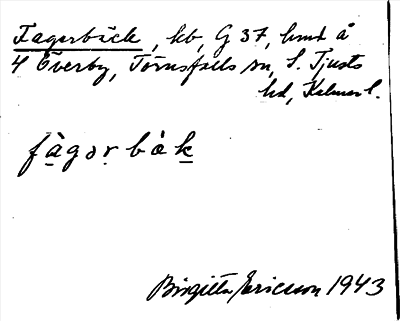 Fagerbäck, kb, G 37, hmd å
4 Överby, Törnsfalls sn, S. Tjusts
hd, Kalmar l.
fàgərbàk
Birgitta Ericsson 1943